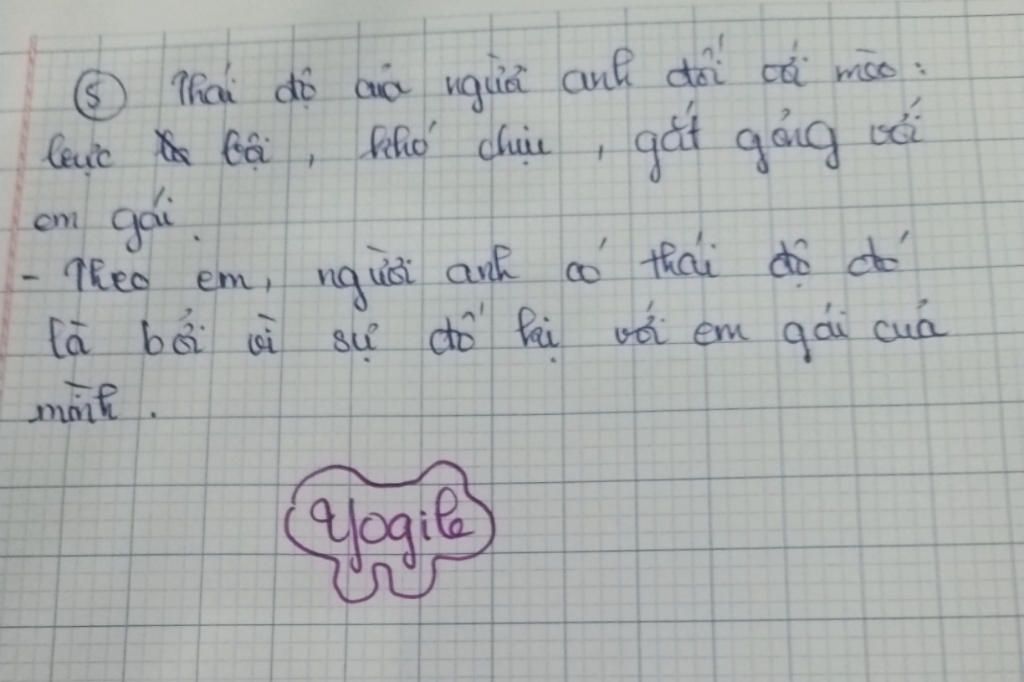 ⑤ Thái độ của người anh đối với mèo:
bực bội, khó chịu, gắt gỏng với
em gái.
- Theo em, người anh có thái độ đó
là bởi vì sự đố kị với em gái của
mình.
Yogile